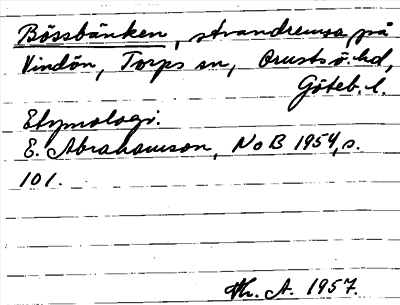 Bössbänken, strandremsa på
Vindön, Torps sn, Orusts ö. hd,
Göteb. l.
Etymologi.
E. Abrahamson, NoB 1954, s.
101.
Th. A. 1957.